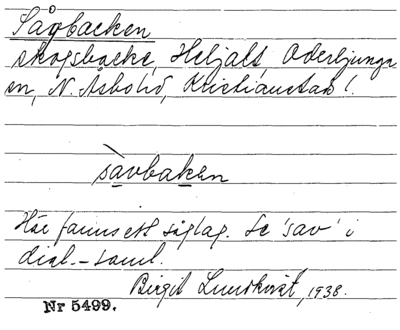 Sågbacken
skogsbacke, Heljalt, Oderljunga
sn, N. Åsbo hd, Kristianstads l.
sàvbaken
Här fanns ett såglag. Se 'sav' i
dial.-saml.
Birgit Lundkvist, 1938.
Nr 5499.